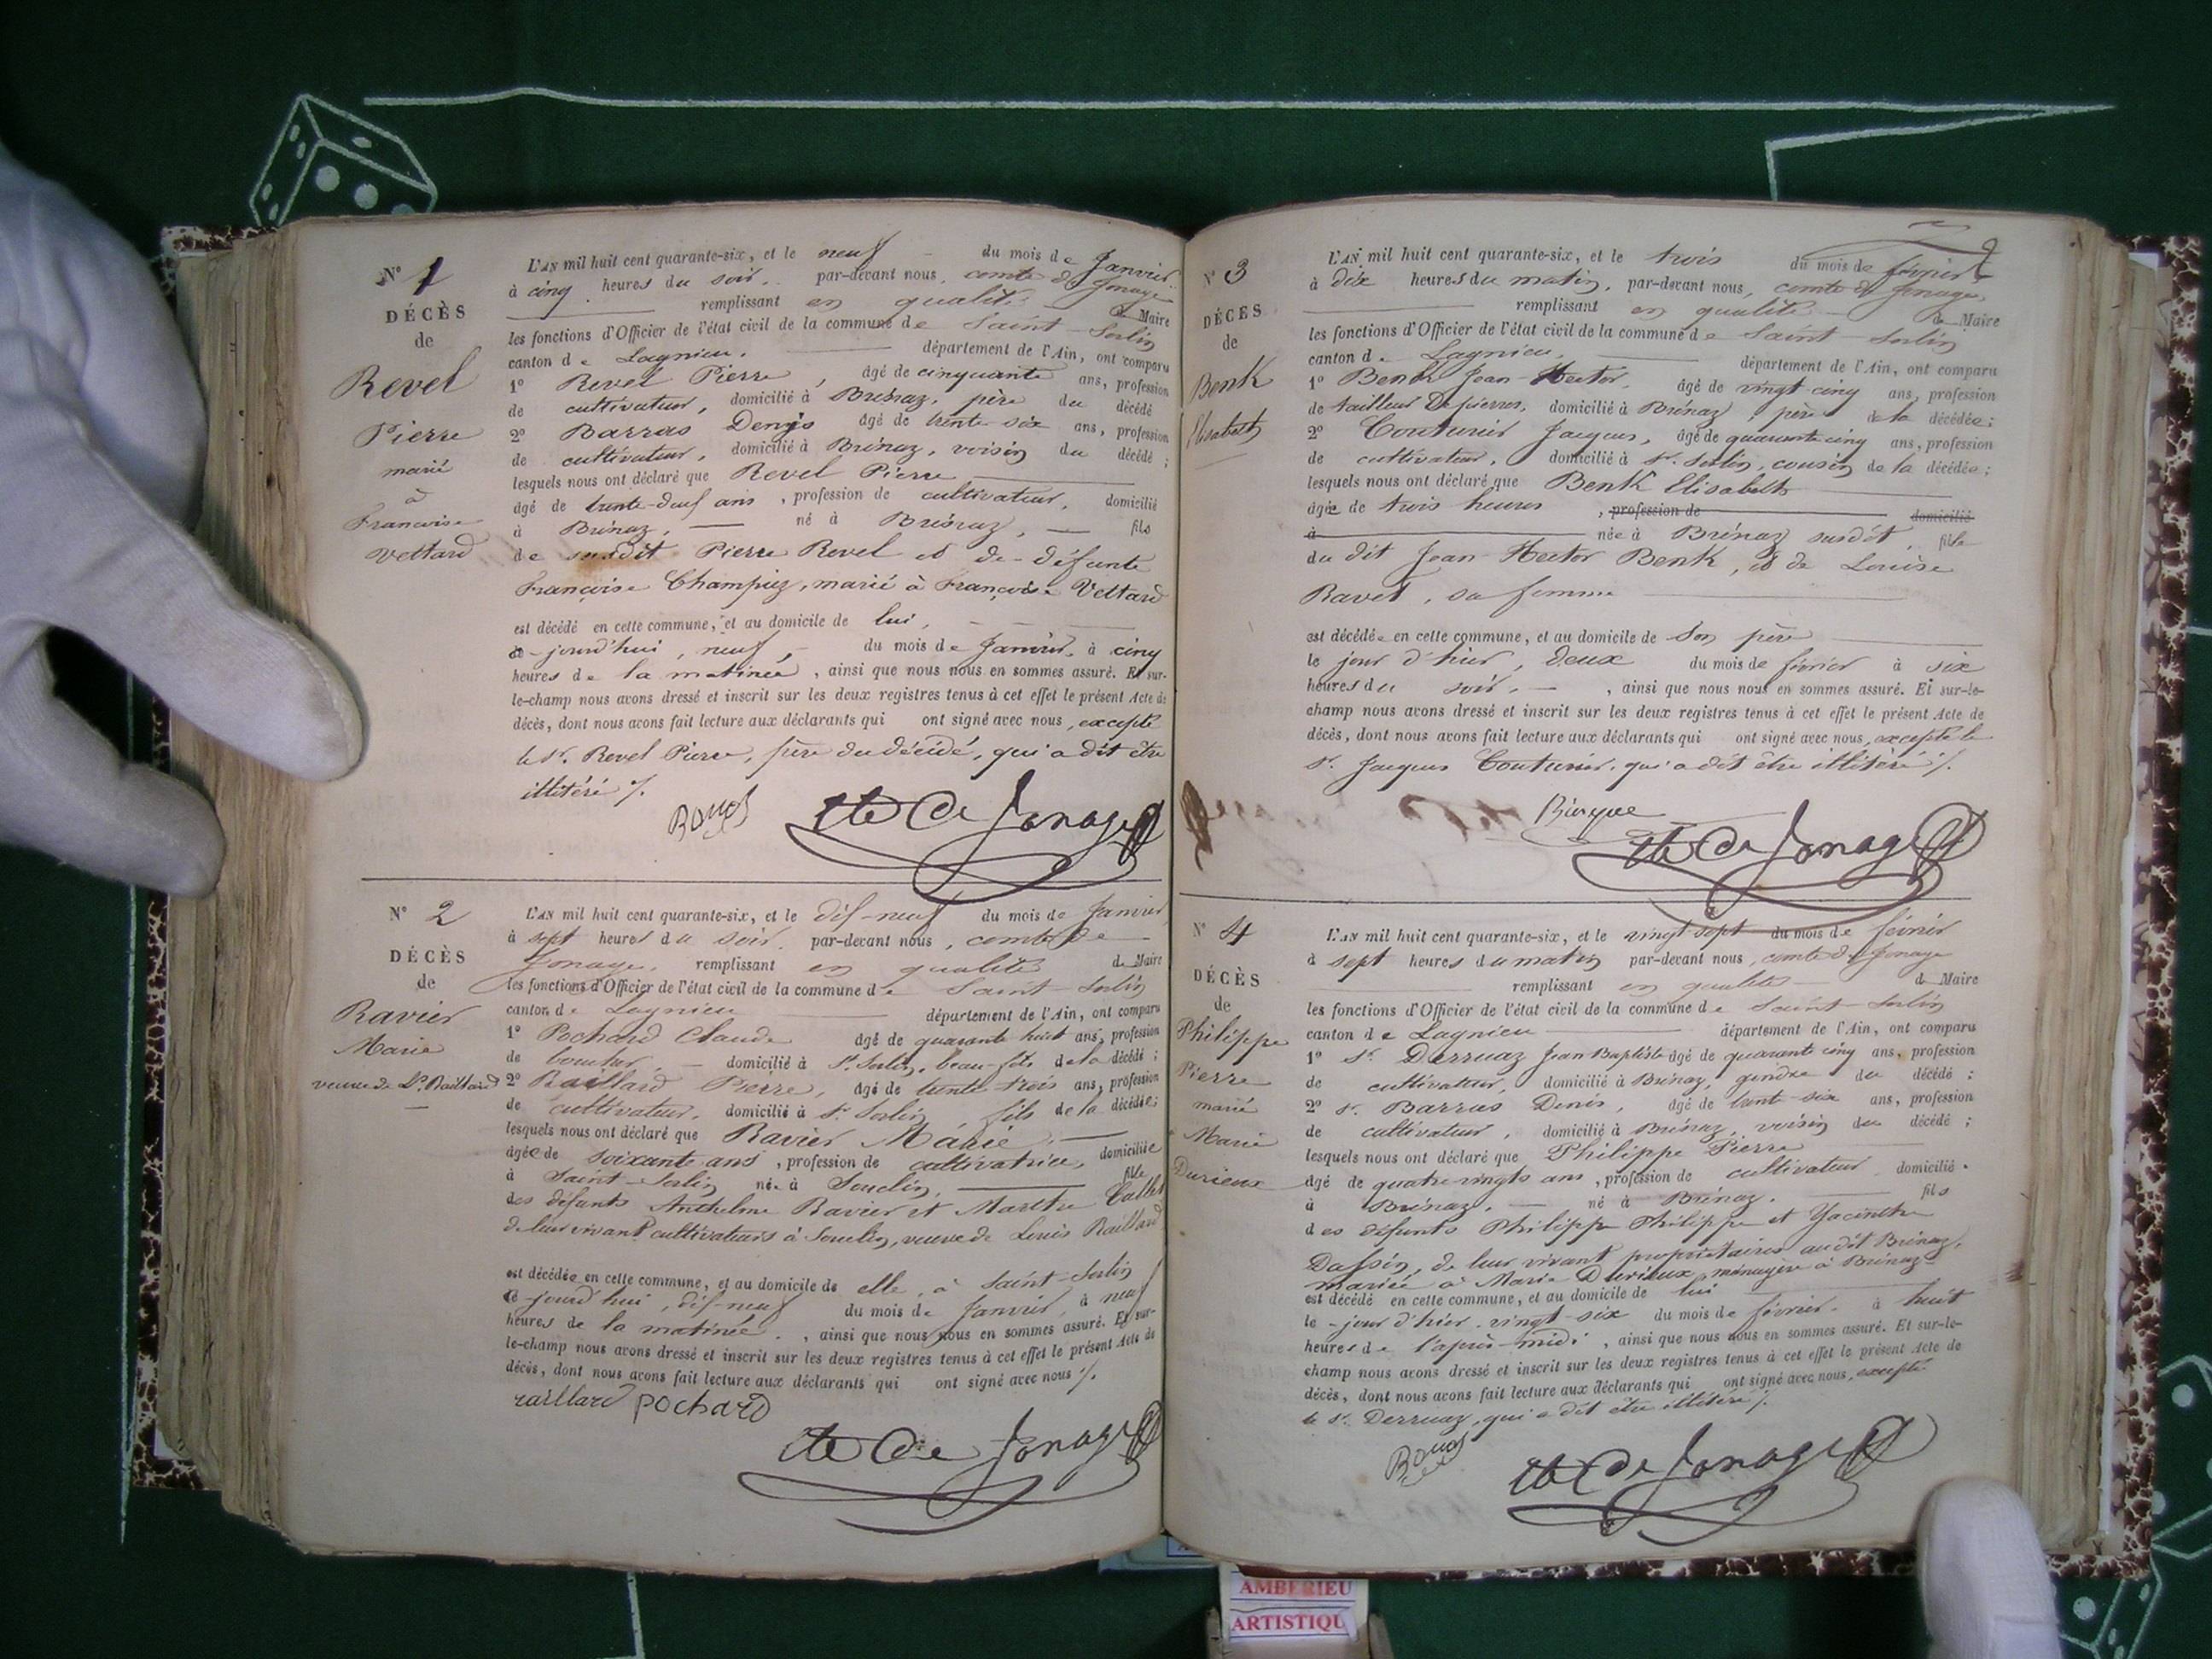 N° 1
DÉCÈS
de
Revel
Pierre
marié
à
Françoise
Vettard
L'AN mil huit cent quarante-six, et le neuf du mois de Janvier
à cinq heures du soir, par-devant nous, comte de Jonage
remplissant en qualité de Maire
les fonctions d'Officier de l'état civil de la commune de Saint-Sorlin
canton de Lagnieu, département de l'Ain, ont comparu
1° Revel Pierre, âgé de cinquante ans, profession
de cultivateur, domicilié à Brénaz, père du décédé
2° Barras Denys âgé de trente six ans, profession
de cultivateur, domicilié à Brénaz, voisin du décédé ;
lesquels nous ont déclaré que Revel Pierre
âgé de trente-deux ans, profession de cultivateur, domicilié
à Brénaz, né à Brénaz, fils
de susdit Pierre Revel et de défunte
Françoise Champiez, marié à Françoise Vettard
est décédé en cette commune, et au domicile de lui,
ce jourd'hui, neuf, du mois de Janvier, à cinq
heures de la matinée, ainsi que nous nous en sommes assuré. Et sur-
le-champ nous avons dressé et inscrit sur les deux registres tenus à cet effet le présent Acte de
décès, dont nous avons fait lecture aux déclarants qui ont signé avec nous, excepté
le Sr. Revel Pierre, père du décédé, qui a dit être
illitéré ./.
Cte De Jonage
N° 2
DÉCÈS
de
Ravier
Marie
veuve de Ls. Raillard
L'AN mil huit cent quarante-six, et le dix-neuf du mois de Janvier
à sept heures du soir, par-devant nous, comte de
Jonage, remplissant en qualité de Maire
les fonctions d'Officier de l'état civil de la commune de Saint-Sorlin
canton de Lagnieu département de l'Ain, ont comparu
1° Pochard Claude âgé de quarante huit ans, profession
de boucher, domicilié à St. Sorlin, beau-fils de la décédé ;
2° Raillard Pierre, âgé de trente-trois ans, profession
de cultivateur, domicilié à St Sorlin fils de la décédée ;
lesquels nous ont déclaré que Ravier Marie,
âgée de soixante ans, profession de cultivatrice, domiciliée
à Saint-Sorlin née à Souclin, fille
des défunts Anthelme Ravier et Marthe Callet
de leur vivant cultivateurs à Souclin, veuve de Louis Raillard
est décédée en cette commune, et au domicile de elle, à Saint-Sorlin
ce jourd'hui, dix-neuf du mois de Janvier, à neuf
heures de la matinée, ainsi que nous nous en sommes assuré. Et sur-
le-champ nous avons dressé et inscrit sur les deux registres tenus à cet effet le présent Acte de
décès, dont nous avons fait lecture aux déclarants qui ont signé avec nous ./.
raillard pochard
Cte De Jonage
N° 3
DÉCÈS
de
Benk
Elisabeth
L'AN mil huit cent quarante-six, et le trois du mois de février
à dix heures du matin, par-devant nous, comte de Jonage,
remplissant en qualité de Maire
les fonctions d'Officier de l'état civil de la commune de Saint-Sorlin
canton de Lagnieu, département de l'Ain, ont comparu
1° Benk Jean-Hector, âgé de vingt-cinq ans, profession
de tailleur De pierres, domicilié à Brénaz, père de la décédée ;
2° Couturier Jacques, âgé de quarante cinq ans, profession
de cultivateur, domicilié à St. Sorlin, cousin de la décédée ;
lesquels nous ont déclaré que Benk Elisabeth
âgée de trois heures, profession de domicilié
à née à Brénaz susdit, fille
du dit Jean-Hector Benk, et de Louise
Ravet, sa femme
est décédée en cette commune, et au domicile de son père
le jour d'hier, deux du mois de février à six
heures du soir, ainsi que nous nous en sommes assuré. Et sur-le-
champ nous avons dressé et inscrit sur les deux registres tenus à cet effet le présent Acte de
décès, dont nous avons fait lecture aux déclarants qui ont signé avec nous, excepté le
Sr. Jacques Couturier, qui a dit être illitéré ./.
Cte De Jonage
N° 4
DÉCÈS
de
Philippe
Pierre
marié
Marie
Durieux
L'AN mil huit cent quarante-six, et le vingt sept du mois de février
à sept heures du matin par-devant nous, comte de Jonage
remplissant en qualité de Maire
les fonctions d'Officier de l'état civil de la commune de Saint-Sorlin
canton de Lagnieu département de l'Ain, ont comparu
1° Sr. Derruaz Jean Baptiste âgé de quarante cinq ans, profession
de cultivateur, domicilié à Brénaz, gendre du décédé ;
2° Sr. Barras Denis, âgé de trente-six ans, profession
de cultivateur, domicilié à Brénaz, voisin du décédé ;
lesquels nous ont déclaré que Philippe Pierre
âgé de quatre-vingts ans, profession de cultivateur domicilié
à Brénaz, né à Brénaz, fils
des défunts Philippe Philippe et Yacinthe
Dassin, de leur vivant propriétaires audit Brénaz,
mariée à Marie Durieux, ménagère à Brénaz
est décédé en cette commune, et au domicile de lui
le jour d'hier, vingt-six du mois de février, à huit
heures de l'après-midi, ainsi que nous nous en sommes assuré. Et sur-le-
champ nous avons dressé et inscrit sur les deux registres tenus à cet effet le présent Acte de
décès, dont nous avons fait lecture aux déclarants qui ont signé avec nous, excepté
le Sr. Derruaz, qui a dit être illitéré ./.
Cte De Jonage
AMBERIEU
ARTISTIQU